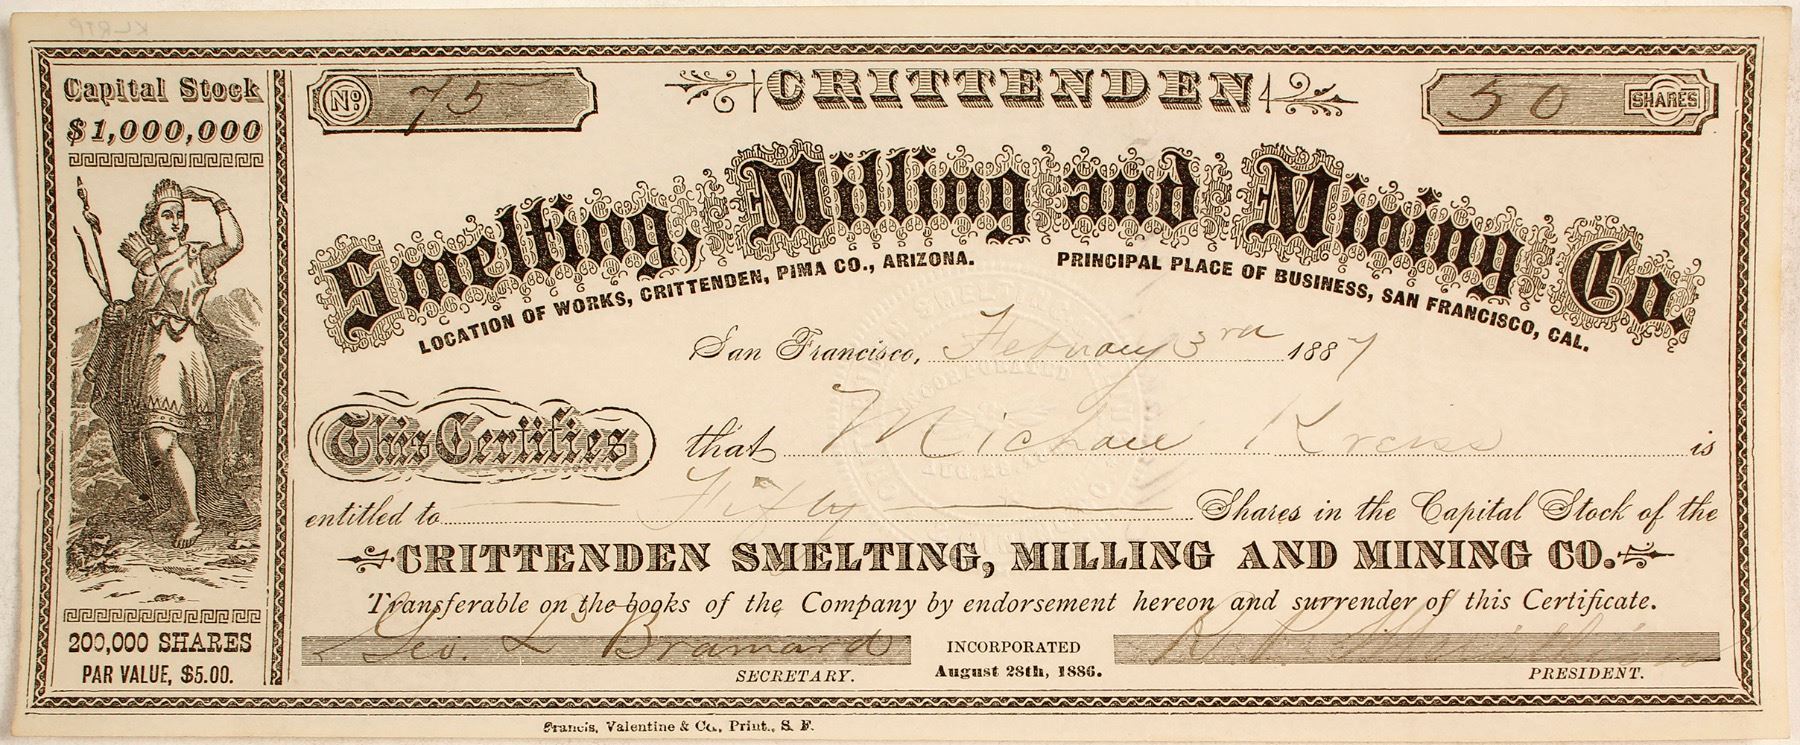 Capital Stock
$1,000,000
200,000 SHARES
PAR VALUE, $5.00.
No. 75
CRITTENDEN
50 SHARES
Smelting, Milling and Mining Co.
LOCATION OF WORKS, CRITTENDEN, PIMA CO., ARIZONA.
PRINCIPAL PLACE OF BUSINESS, SAN FRANCISCO, CAL.
San Francisco, February 3rd 1887
This Certifies that Michael Kreiss is
entitled to Fifty Shares in the Capital Stock of the
CRITTENDEN SMELTING, MILLING AND MINING CO.
Transferable on the books of the Company by endorsement hereon and surrender of this Certificate.
Geo. L. Bramard
SECRETARY.
INCORPORATED
August 28th, 1886.
PRESIDENT.
Francis, Valentine & Co., Print., S. F.